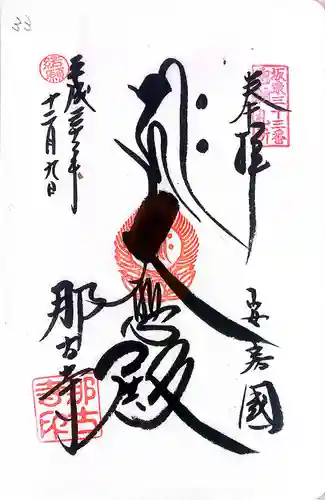 33
坂東三十三番
奉拝
安房國
大悲殿
結願
平成
年
十二月九日
那古寺
那古
寺印